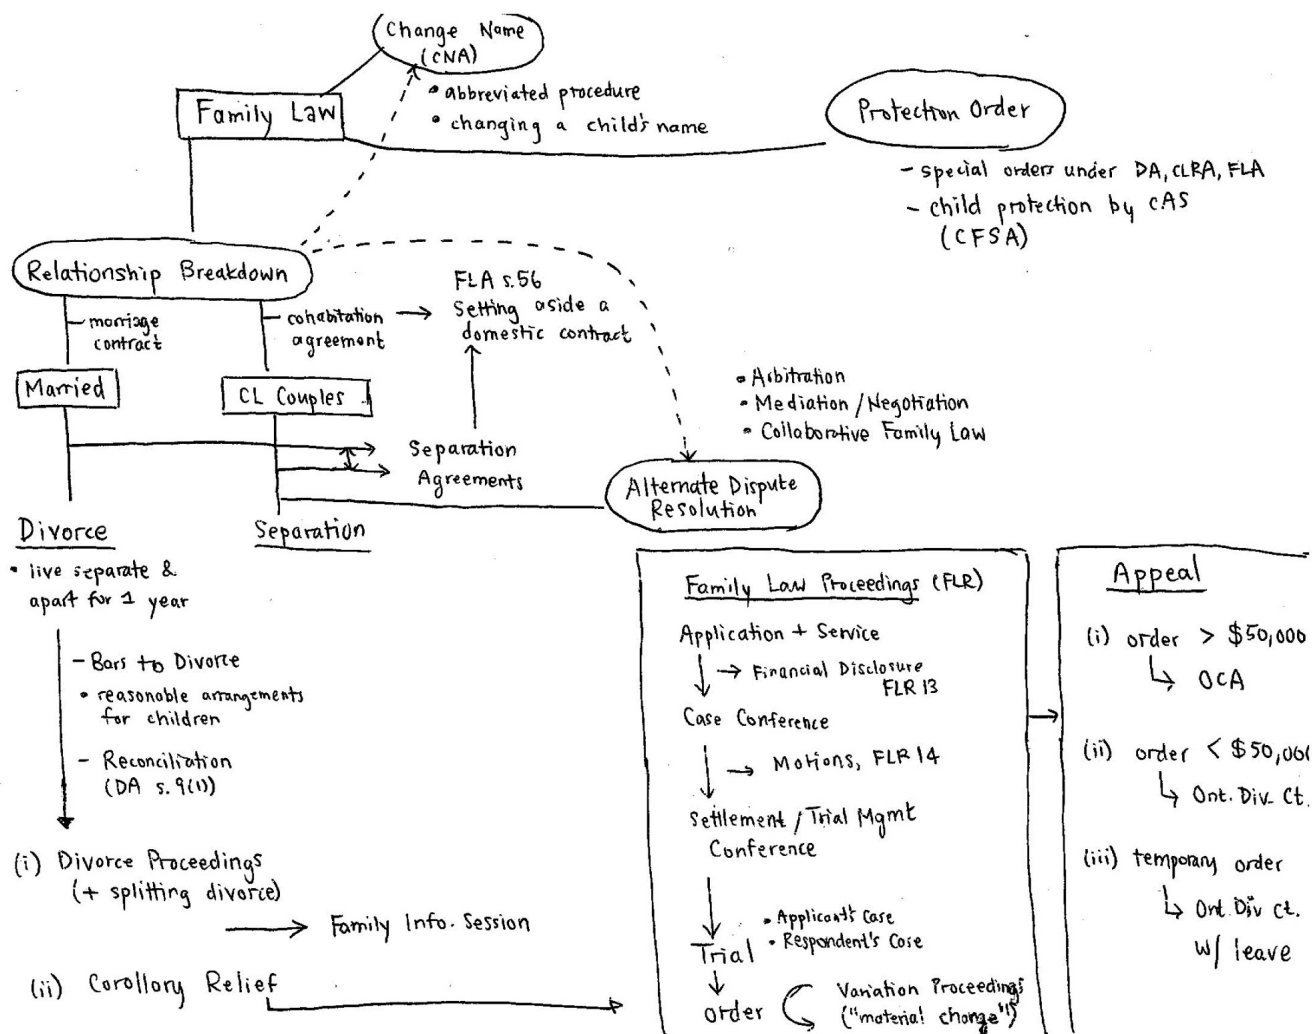 Change Name
(CNA)
• abbreviated procedure
• changing a child's name
Family Law
Protection Order
- special orders under DA, CLRA, FLA
- child protection by CAS
(CFSA)
Relationship Breakdown
- marriage
contract
- cohabitation
agreement
FLA s.56
Setting aside a
domestic contract
Married
CL Couples
• Arbitration
• Mediation / Negotiation
• Collaborative Family Law
Separation
Agreements
Alternate Dispute
Resolution
Divorce
• live separate &
apart for 1 year
Separation
- Bars to Divorce
• reasonable arrangements
for children
- Reconciliation
(DA s.9(1))
(i) Divorce Proceedings
(+ splitting divorce)
Family Info. Session
(ii) Corollory Relief
Family Law Proceedings (FLR)
Application + Service
Financial Disclosure
FLR 13
Case Conference
Motions, FLR 14
Settlement / Trial Mgmt
Conference
Trial
• Applicant's Case
• Respondent's Case
order
Variation Proceedings
("material change")
Appeal
(i) order > $50,000
OCA
(ii) order < $50,000
Ont. Div. Ct.
(iii) temporary order
Ont. Div Ct.
w/ leave